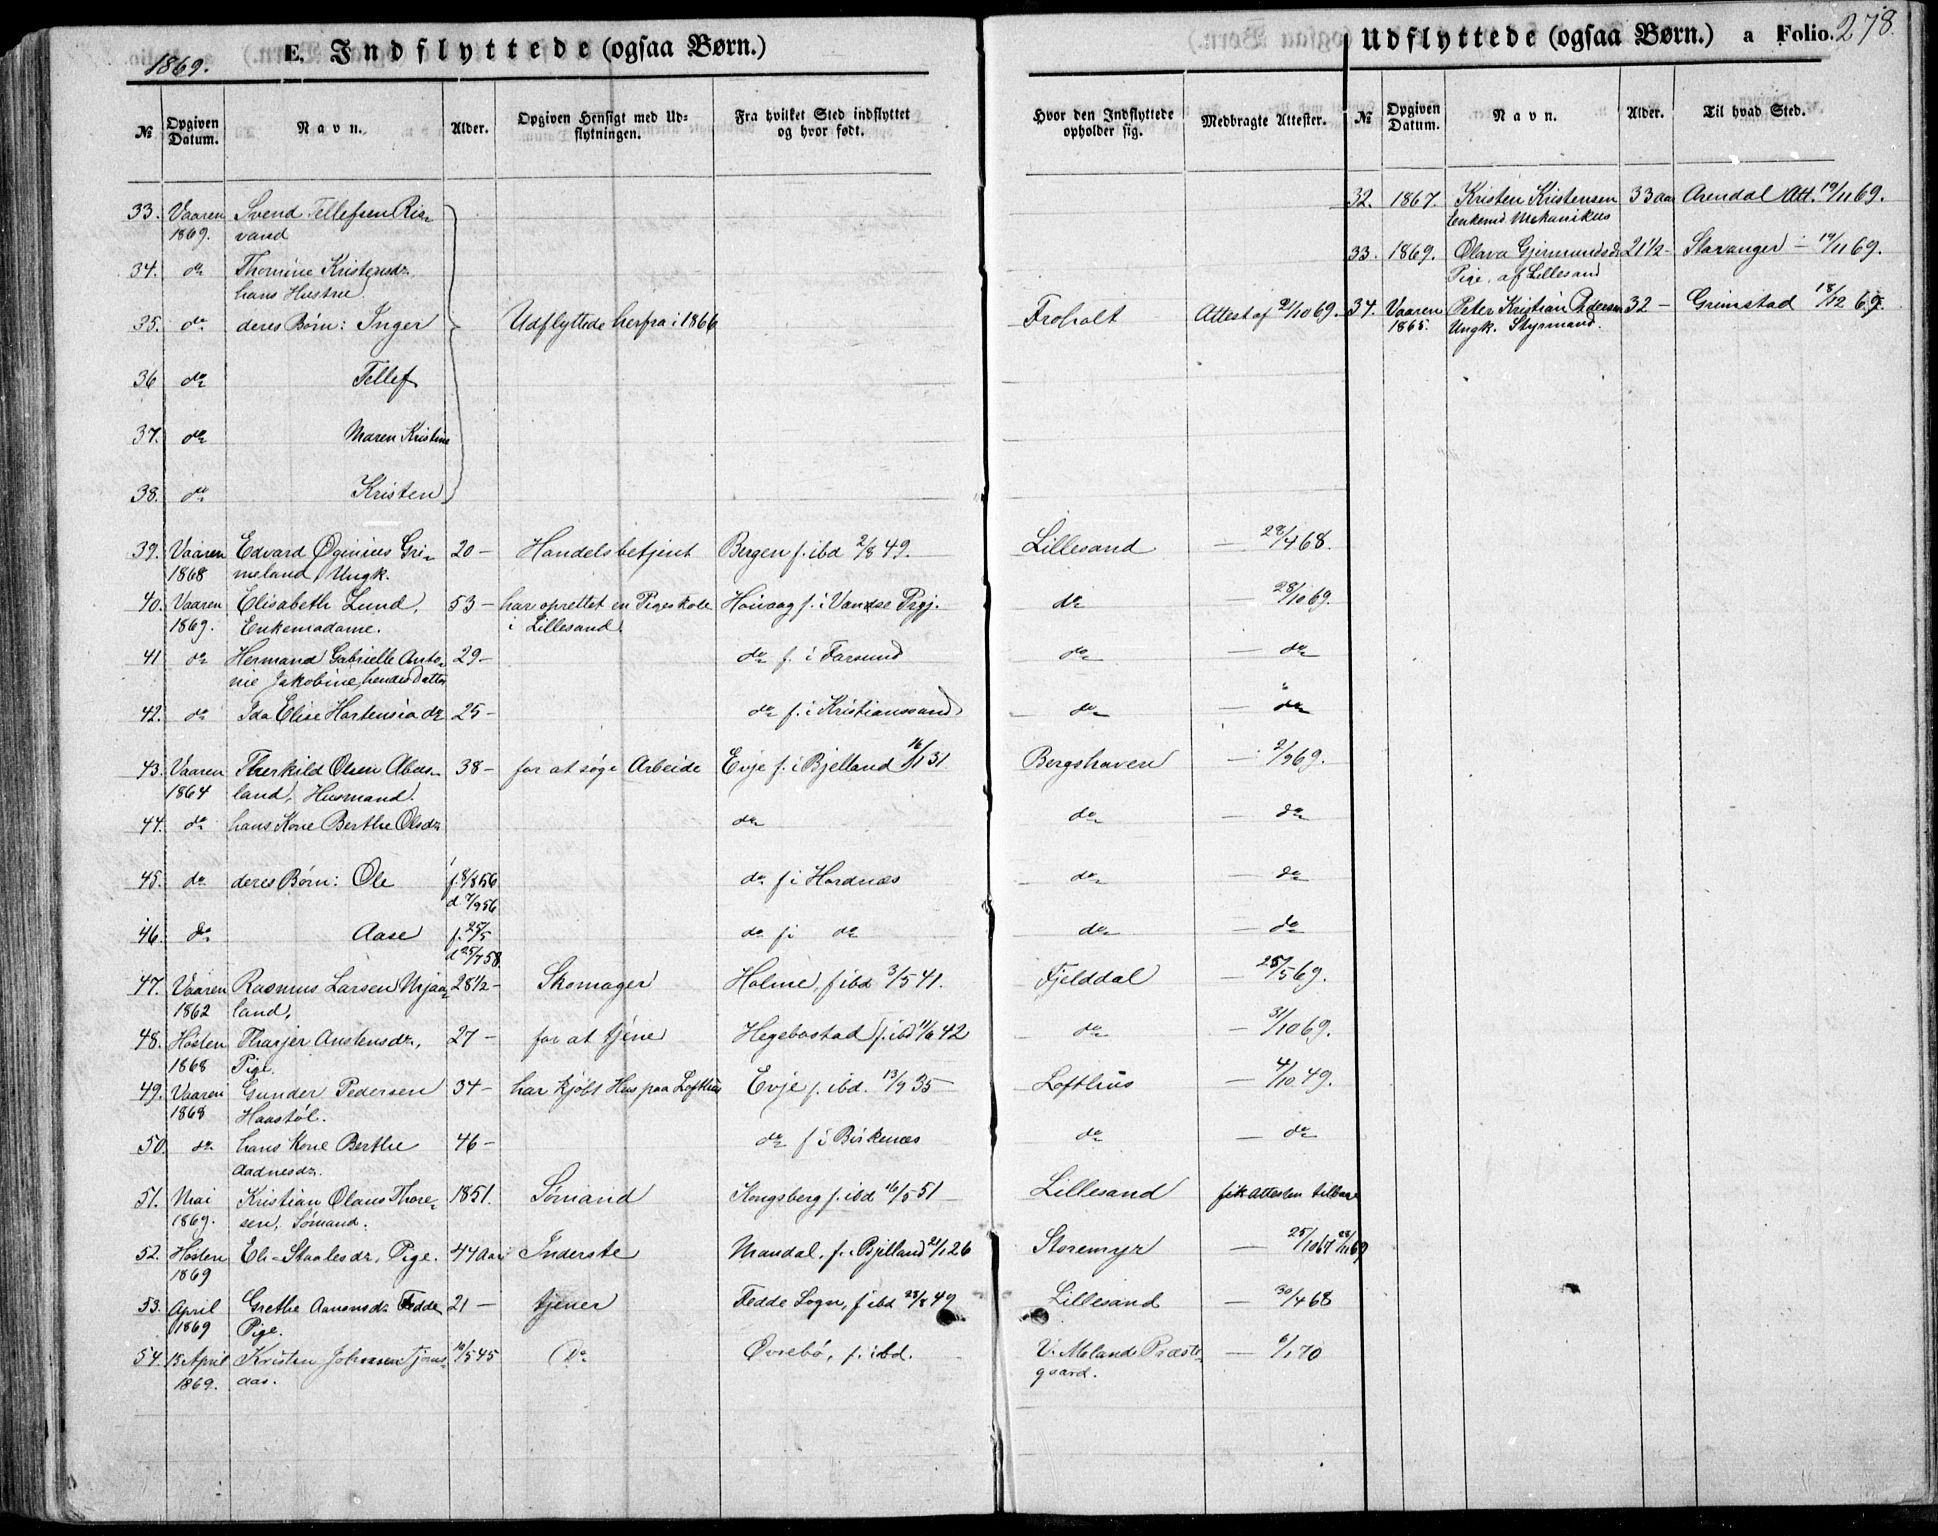 1869.
E. Indflyttede (ogsaa Børn.)
№
Opgiven Datum.
Navn.
Alder.
Opgiven Hensigt med Udflytningen.
Fra hvilket Sted indflyttet og hvor født.
33. Vaaren Svend Tellefsen Ris-
1869. vand
34. do Thomine Kristensdr.
hans Hustru
35. do deres Børn: Inger Udflyttede herfra i 1866
36 do Tellef
37. do Maren Kristine
38. do Kristen
39. Vaaren Edvard Øginius Gri- 20 – Handelsbetjent Bergen f. ibd 2/8 49.
1868 meland, Ungk.
40. Vaaren Elisabeth Lund, 53 – har oprettet en Pigeskole Høivaag f. i Vandse Prgj.
1869. Enkemadame. i Lillesand.
41 do Hermand Gabrielle Anto- 29 – do f. i Farsund
nie Jakobine, hendes Datter
42. do Ida Elise Hortensia do 25 – do f. i Kristianssand
43. Vaaren Therkild Olsen Abus- 38 – for at søge Arbeide Evje f. i Bjelland 16/11 31
1864 land, Husmand.
44. do hans Kone Berthe Olsdr do
45. do deres Børn: Ole f. 8/8 56 do f i Hordnæs
d 7/9 56
46. do Aase f. 25/5 do f i do
d 25/7 58.
47. Vaaren Rasmus Larsen Mjaa- 28 1/2 – Skomager Holme, f ibd 3/5 41.
1862 land,
48. Høsten Tharjer Austensdr, 27 – for at tjene Hegebostad f. ibd 11/6 42
1868 Pige.
49. Vaaren Gunder Pedersen 34 – har kjøbt Hus paa Lofthus Evje f. ibd. 13/9 35 –
1868 Haastøl.
50. do hans Kone Berthe 46 – do f i Birkenæs
Aadnesdr.
51. Mai Kristian Olaus Thore- 1851. Sømand Kongsberg f. ibd 16/5 51 –
1869. sen, Sømand.
52. Høsten Eli Staalesdr, Pige. 44 Aar Inderste Mandal, f. i Bjelland 21/1 26
1869
53. April Grethe Aanensdr Fedde 21 – tjener Fedde Sogn, f ibd 23/8 49
1869 Pige.
54. 15 April Kristen Johnsen Tjoms- 10/5 45 Do Øvrebø, f. ibd.
1869. aas.
Udflyttede (ogsaa Børn.)
a Folio. 278.
Hvor den Indflyttede opholder sig.
Medbragte Attester.
№
Opgiven Datum.
Navn.
Alder.
Til hvad Sted.
32. 1867. Kristen Kristensen 33 aar Arendal Att. 19/11 69.
Enkemd Mekanikus
33. 1869. Olava Gjermundsdr 21 1/2 – Stavanger – 19/11 69.
Pige, af Lillesand
Froholt Attest af 21/10 69. 34. Vaaren Peter Kristian Pedersen 32 – Grimstad 18/12 69.
1865. Ungk. Styrmand.
Lillesand – 28/4 68.
do – 28/10 69.
do – do
do – do
Bergshaven – 2/9 69.
do – do
do – do
do – do
Fjelddal – 25/5 69.
do – 31/10 69.
Lofthus – 4/10 49.
do – do
Lillesand fik Attesten tilbage
Storemyr – 25/10 67 23/11 69
Lillesand – 30/4 68
V. Molands Præste- – 6/1 70
gaard.